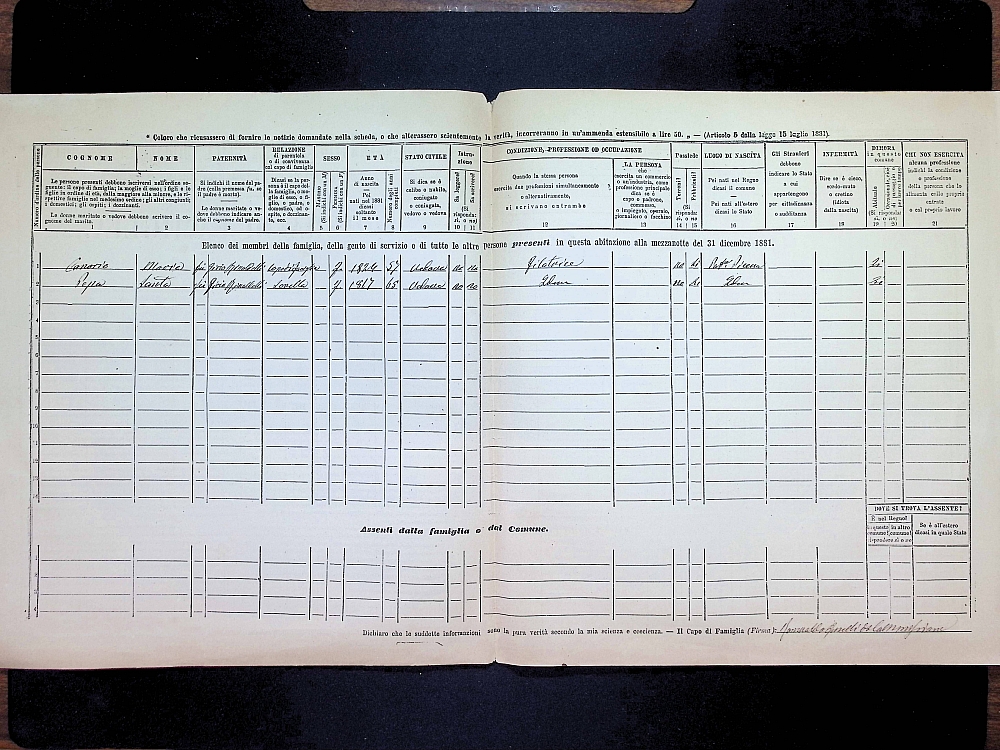 * Coloro che ricusassero di fornire le notizie domandate nella scheda, o che alterassero scientemente la verità, incorreranno in un'ammenda estensibile a lire 50. „ — (Articolo 5 della legge 15 luglio 1881).
Numero d'ordine delle persone
COGNOME
NOME
PATERNITÀ
RELAZIONE di parentela o di convivenza col capo di famiglia
SESSO
ETÀ
STATO CIVILE
Istruzione
CONDIZIONE, PROFESSIONE OD OCCUPAZIONE
Possiede
LUOGO DI NASCITA
Gli Stranieri
INFERMITÀ
DIMORA in questo comune
CHI NON ESERCITA
Le persone presenti debbono iscriversi nell'ordine seguente: il capo di famiglia; la moglie di esso; i figli e le figlie in ordine di età, dalla maggiore alla minore, e le rispettive famiglie nel medesimo ordine; gli altri congiunti; i domestici; gli ospiti; i dozzinanti.
Le donne maritate o vedove debbono scrivere il cognome del marito.
Si indichi il nome del padre (colla premessa fu, se il padre è morto).
Le donne maritate o vedove debbono indicare anche il cognome del padre.
Dicasi se la persona è il capo della famiglia, o moglie di esso, o figlio, o padre, o domestico, od ospite, o dozzinante, ecc.
Maschio (Si indichi con un M)
Femmina (Si indichi con un F)
Anno di nascita — Pei nati nel 1881 dicasi soltanto il mese
Numero degli anni compiuti
Si dica se è celibe o nubile, coniugato o coniugata, vedovo o vedova
Sa leggere?
Sa scrivere?
(Si risponda: sì, o no)
Quando la stessa persona esercita due professioni simultaneamente o alternativamente, si scrivano entrambe
LA PERSONA che esercita un commercio o un'industria, come professione principale dica se è capo o padrone, commesso, o impiegato, operaio, giornaliero o facchino
Terreni?
Fabbricati?
(Si risponda: sì, o no)
Pei nati nel Regno dicasi il comune
Pei nati all'estero dicasi lo Stato
debbono indicare lo Stato a cui appartengono per cittadinanza o sudditanza
Dire se è cieco, sordo-muto o cretino (idiota dalla nascita)
Abituale
(Si risponda: sì, o no)
alcuna professione indichi la condizione o professione della persona che lo alimenta colle proprie entrate o col proprio lavoro
1 2 3 4 5 6 7 8 9 10 11 12 13 14 15 16 17 18 19 20 21
Elenco dei membri della famiglia, della gente di servizio o di tutte le altre persone presenti in questa abitazione alla mezzanotte del 31 dicembre 1881.
1 Maria capo di famiglia f. 1824 57 Vedova no no Filatrice no Si
2 Santa Sorella f. 1817 65 Vedova no no Idem no Idem
Assenti dalla famiglia o dal Comune.
DOVE SI TROVA L'ASSENTE?
È nel Regno?
in questo comune?
in altro comune?
Se è all'estero dicasi in quale Stato
Dichiaro che le suddette informazioni sono la pura verità secondo la mia scienza e coscienza. — Il Capo di Famiglia (Firma):